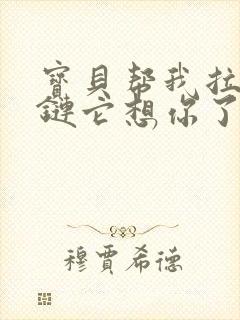 寶貝幫我拉
鏈它想你了
穆賈希德